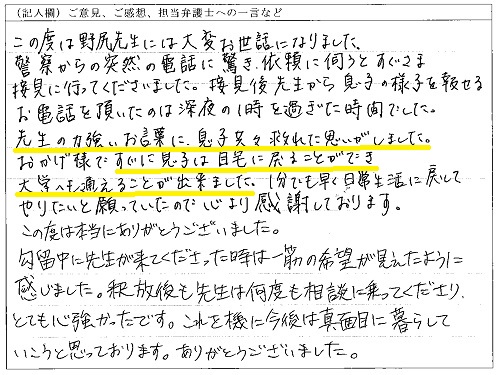 （記入欄）ご意見、ご感想、担当弁護士への一言など
この度は野尻先生には大変お世話になりました。
警察からの突然の電話に驚き、依頼に伺うとすぐさま
接見に行ってくださいました。接見後先生から息子の様子を報せる
お電話を頂いたのは深夜の1時を過ぎた時間でした。
先生の力強いお言葉に、息子共々救われた思いがしました。
おかげ様ですぐに息子は自宅に戻ることができ
大学へも通えることが出来ました。1分でも早く日常生活に戻して
やりたいと願っていたので心より感謝しております。
この度は本当にありがとうございました。
勾留中に先生が来てくださった時は一筋の希望が見えたように
感じました。釈放後も先生は何度も相談に乗ってくださり、
とても心強かったです。これを機に今後は真面目に暮らして
いこうと思っております。ありがとうございました。